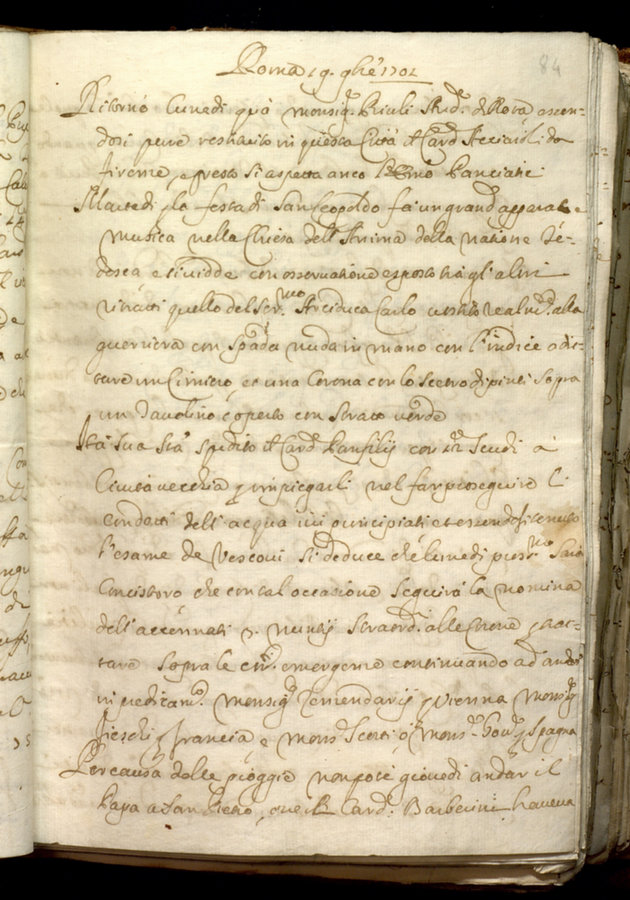 84
Roma 19. 9bre 1701
Ritornò Lunedi quà monsig.r Priuli Aud.e di Rota essen-
dosi pure restituito in questa Città il Card. Acciaioli da
Firenze, e presto si aspetta anco Panciatici
Martedi p la festa di San Leopoldo fù un grand apparato e
musica nella Chiesa dell'Anima della natione Te-
desca e si vidde con osservatione esposto trà gli altri
ritratti quello del Ser.mo Arciduca Carlo vestito alla
guerriera con spada nuda in mano con l'indice
un Cimiero, et una Corona con lo Scetro dipinti sopra
un Tavolino coperto con Strato verde
Hà Sua Stà spedito il Card. Panfilij con Scudi à
Civita vecchia p impiegarli nel far proseguire li
condotti dell'acqua ivi principiati et essendosi tenuto
l'esame de Vescovi si deduce che lunedi pross.mo sarà
Concistoro che con tal occasione seguirà la nomina
dell'accennati 3. Nuntij Straord. alle Corone p trat-
tare sopra le emergenze continuando ad andar
in predicam.to Monsig.r p Vienna Mons.r
Fieschi p Francia e Mons. Scotti ò Mons. p Spagna
Per causa delle pioggie non potè giovedi andar il
Papa a San Pietro, ove il Card. Barberini haveva